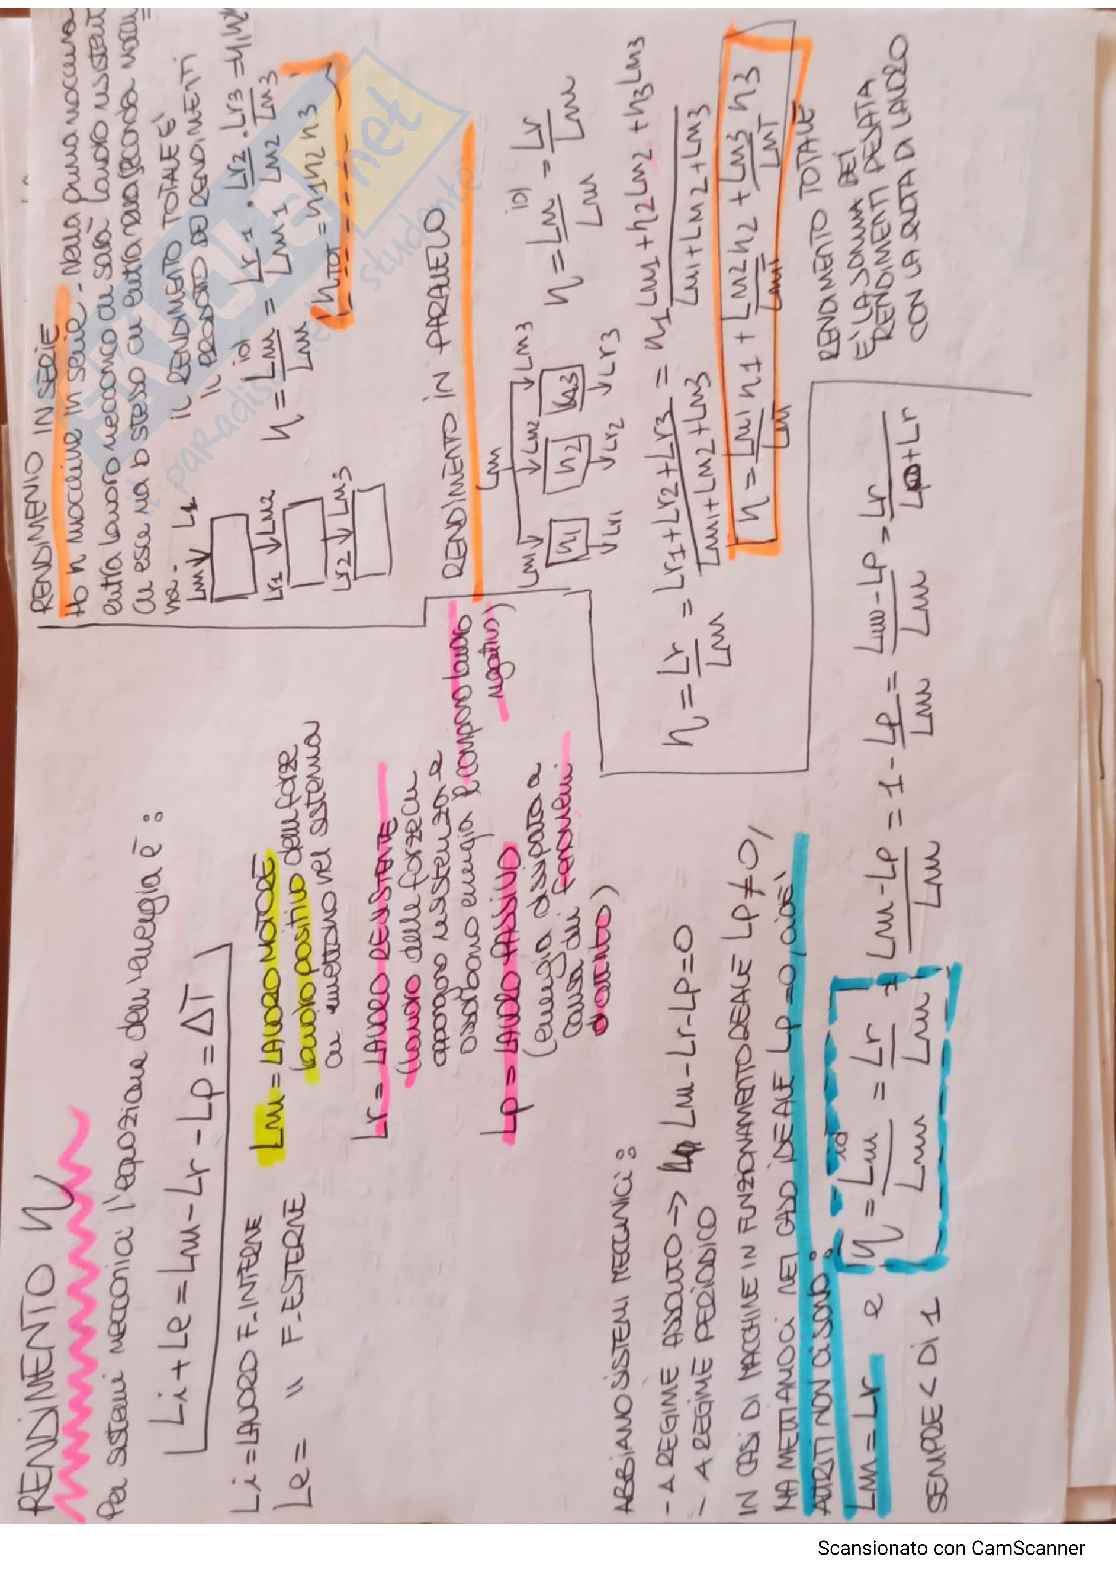 RENDIMENTO η
Per sistemi meccanici l'equazione dell'energia è:
Li + Le = Lm - Lr - Lp = ΔT
Li = LAVORO F. INTERNE
Le = " F. ESTERNE
Lm = LAVORO MOTORE
lavoro positivo delle forze
che immettono nel sistema
Lr = LAVORO RESISTENTE
(lavoro delle forze che
oppongono resistenza e
assorbono energia e compiono lavoro
negativo)
Lp = LAVORO PASSIVO
(energia dissipata a
causa dei fenomeni
d'attrito)
ABBIAMO SISTEMI MECCANICI:
- A REGIME ASSOLUTO -> Lm - Lr - Lp = 0
- A REGIME PERIODICO
IN CASI DI MACCHINE IN FUNZIONAMENTO REALE Lp ≠ 0,
MA METTIAMOCI NEL CASO IDEALE Lp = 0, CIOÈ'
ATTRITI NON CI SONO:
Lm = Lr e η = Lm id / Lm = Lr / Lm = Lm - Lp / Lm = 1 - Lp / Lm = Lm - Lp / Lm = Lr / Lp + Lr
SEMPRE < DI 1
RENDIMENTO IN SERIE
Ho n macchine in serie - Nella prima macchina
entra lavoro meccanico che sarà lavoro resistent
che esce ma lo stesso che entra nella seconda macchi
na.
Lm Lr
Lr1 Lm2
Lr2 Lm3
IL RENDIMENTO TOTALE E'
IL PRODOTTO DEI RENDIMENTI
η = Lm id / Lm = Lr1 / Lm1 · Lr2 / Lm2 · Lr3 / Lm3 = η1η2
ηTOT = η1 η2 η3
RENDIMENTO IN PARALLELO
Lm
Lm1 Lm2 Lm3
η1 η2 η3
Lr1 Lr2 Lr3
η = Lm id / Lm = Lr / Lm
η = Lr / Lm = Lr1 + Lr2 + Lr3 / Lm1 + Lm2 + Lm3 = η1Lm1 + η2Lm2 + η3Lm3 / Lm1 + Lm2 + Lm3
η = Lm1 / Lm η1 + Lm2 η2 / LmT + Lm3 / LmT η3
RENDIMENTO TOTALE
E' LA SOMMA DEI
RENDIMENTI PESATA
CON LA QUOTA DI LAVORO
Scansionato con CamScanner